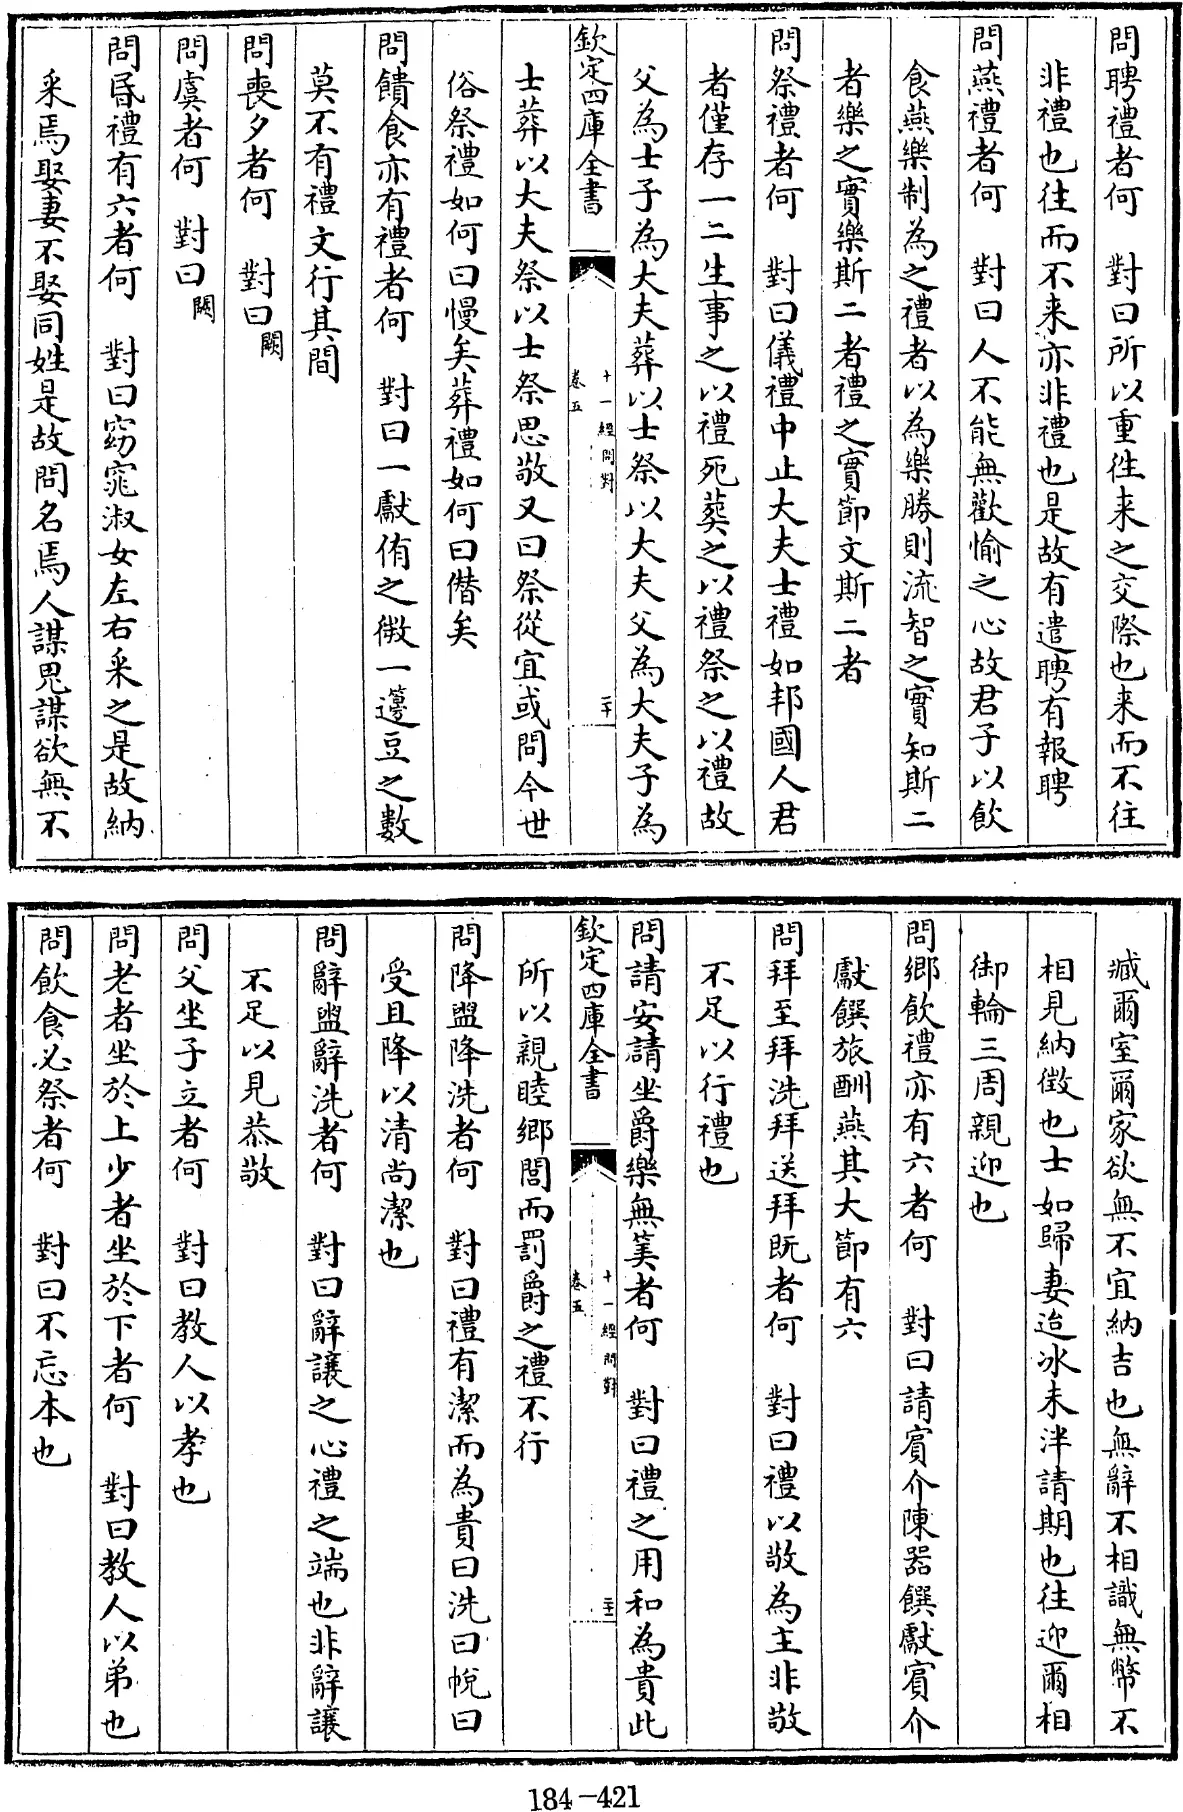 問聘禮者何　對曰所以重徃来之交際也来而不往
非禮也往而不来亦非禮也是故有遣聘有報聘
問燕禮者何　對曰人不能無歡愉之心故君子以飲
食燕樂制為之禮者以為樂勝則流智之實知斯二
者樂之實樂斯二者禮之實節文斯二者
問祭禮者何　對曰儀禮中止大夫士禮如邦國人君
者僅存一二生事之以禮死葬之以禮祭之以禮故
父為士子為大夫葬以士祭以大夫父為大夫子為
欽定四庫全書　卷五　十一經問對　二十
士葬以大夫祭以士祭思敬又曰祭從宜或問今世
俗祭禮如何曰慢矣葬禮如何曰僭矣
問饋食亦有禮者何　對曰一獻侑之微一籩豆之數
莫不有禮文行其間
問喪夕者何　對曰闕
問虞者何　對曰闕
問昏禮有六者何　對曰窈窕淑女左右采之是故納
采焉娶妻不娶同姓是故問名焉人謀鬼謀欲無不
臧爾室爾家欲無不宜納吉也無辭不相識無幣不
相見納徵也士如歸妻迨冰未泮請期也往迎爾相
御輪三周親迎也
問鄉飲禮亦有六者何　對曰請賓介陳器饌獻賓介
獻饌旅酬燕其大節有六
問拜至拜洗拜送拜既者何　對曰禮以敬為主非敬
不足以行禮也
問請安請坐爵樂無筭者何　對曰禮之用和為貴此
欽定四庫全書　卷五　十一經問對　二十一
所以親睦鄉閭而罰爵之禮不行
問降盥降洗者何　對曰禮有潔而為貴曰洗曰帨曰
受且降以清尚潔也
問辭盥辭洗者何　對曰辭讓之心禮之端也非辭讓
不足以見恭敬
問父坐子立者何　對曰教人以孝也
問老者坐於上少者坐於下者何　對曰教人以弟也
問飲食必祭者何　對曰不忘本也
184-421